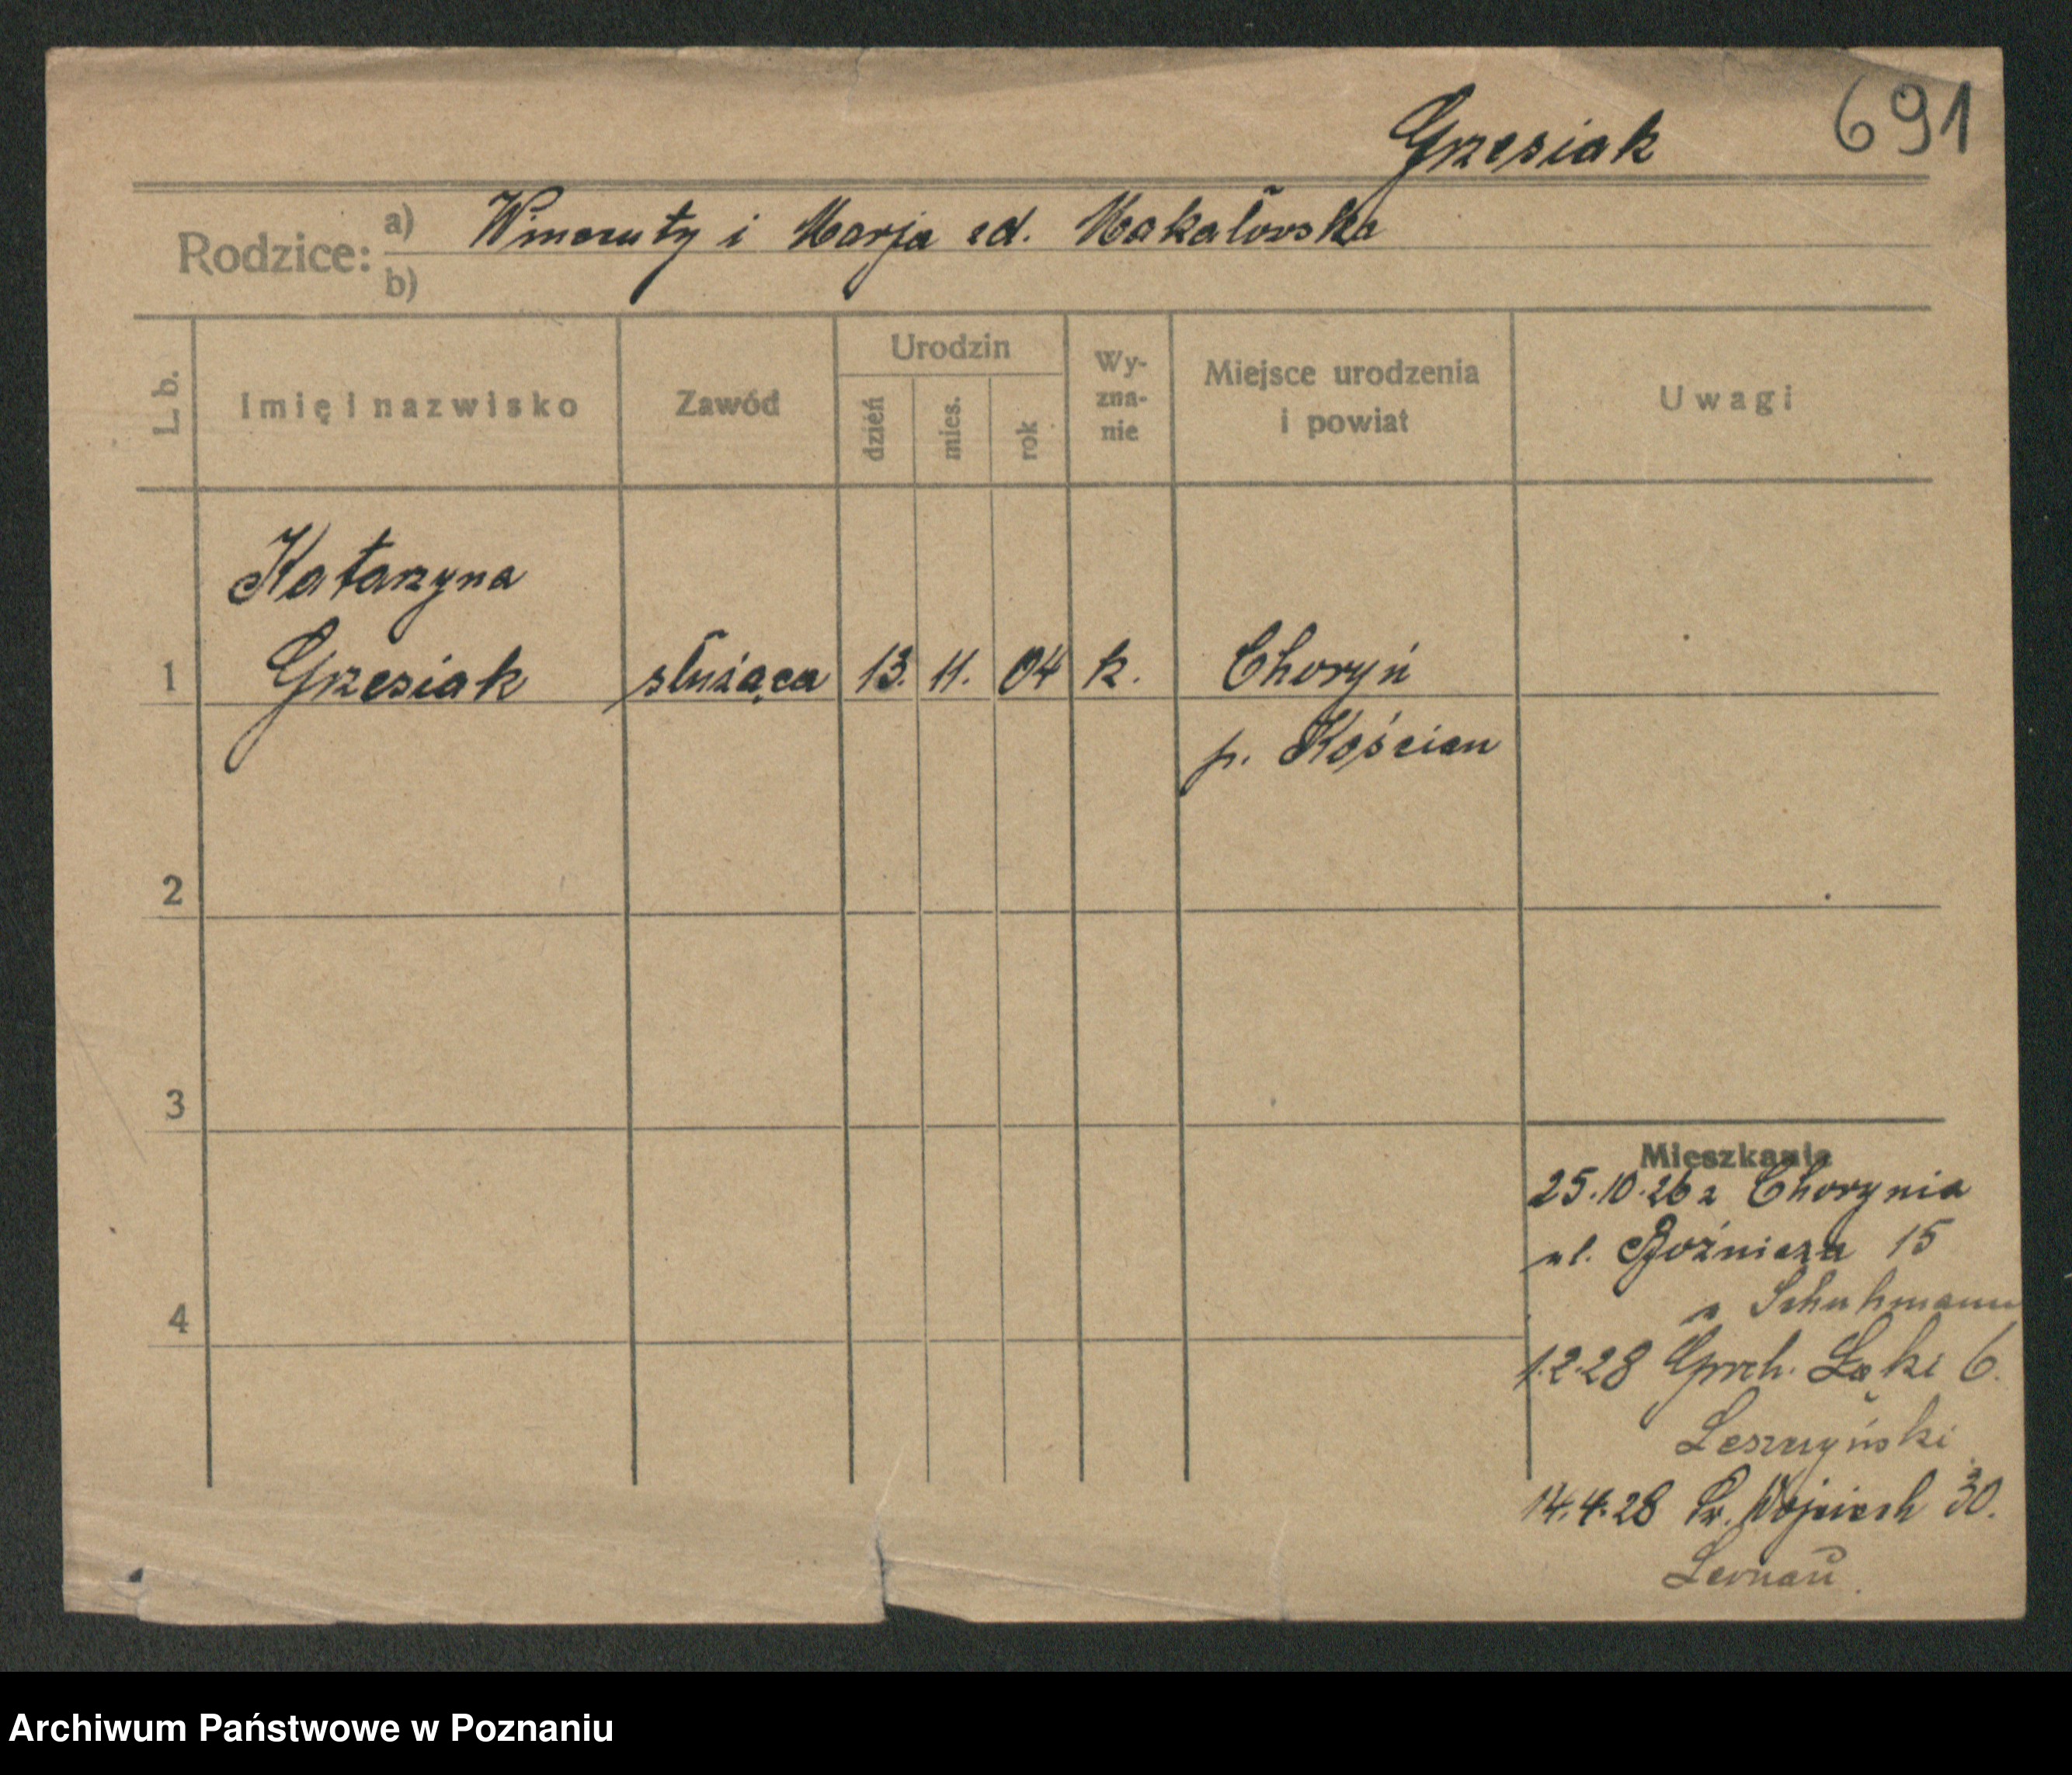 Grzesiak
691
Rodzice:
a) Wincenty i Marja zd. Makałowska
b)
L. b.
Imię i nazwisko
Zawód
Urodzin
dzień
mies.
rok
Wy-
zna-
nie
Miejsce urodzenia
i powiat
Uwagi
Katarzyna
1 Grzesiak służąca 13. 11. 04 k. Choryń
p. Kościan
2
3
4
Mieszkanie
25.10.26 z Chorynia
ul. Bóźnicza 15
u Schuhmann
1.2.28 Grch. Łąki 6.
Leszczyński
14.4.28 Św. Wojciech 30.
Archiwum Państwowe w Poznaniu